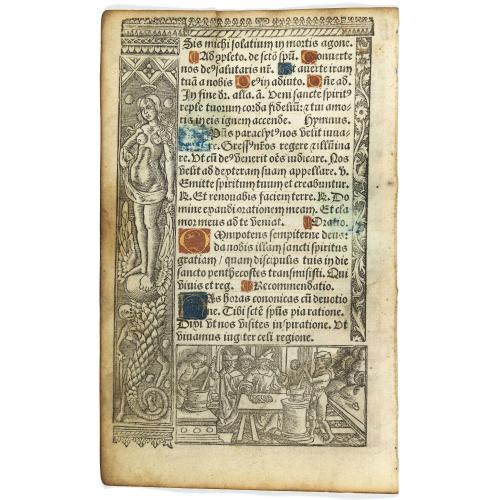 Sis michi solatium in mortis agone.
Ad cõpleto. de sctõ spũ. Conuerte
nos deꝰ salutaris nr̃. Et auerte iram
tuã a nobis Deꝰ in adiuto. Dñe ad.
In fine dr̃. alla. ã. Veni sancte spirit̃
reple tuorum corda fideliũ: ⁊ tui amo
ris in eis ignem accende. Hymnus.
Sp̃us paraclytꝰ nos velit iuua
re. Gressꝰ nr̃os regere ⁊ illũina
re. Ut cũ deꝰ venerit oẽs iudicare. Nos
velit ad dexteram suam appellare. v.
Emitte spiritum tuum et creabuntur.
R. Et renouabis faciem terre. R. Do
mine exaudi orationem meam. Et cla
mor meus ad te veniat. Oratio.
Omnipotens sempiterne deus:
da nobis illam sancti spiritus
gratiam / quam discipulis tuis in die
sancto penthecostes transmisisti. Qui
viuis et reg. Recommendatio.
Has horas cononicas cũ deuotio
ne. Tibi sctẽ spũs pia ratione.
Dixi vt nos visites inspiratione. Ut
viuamus iugiter celi regione.